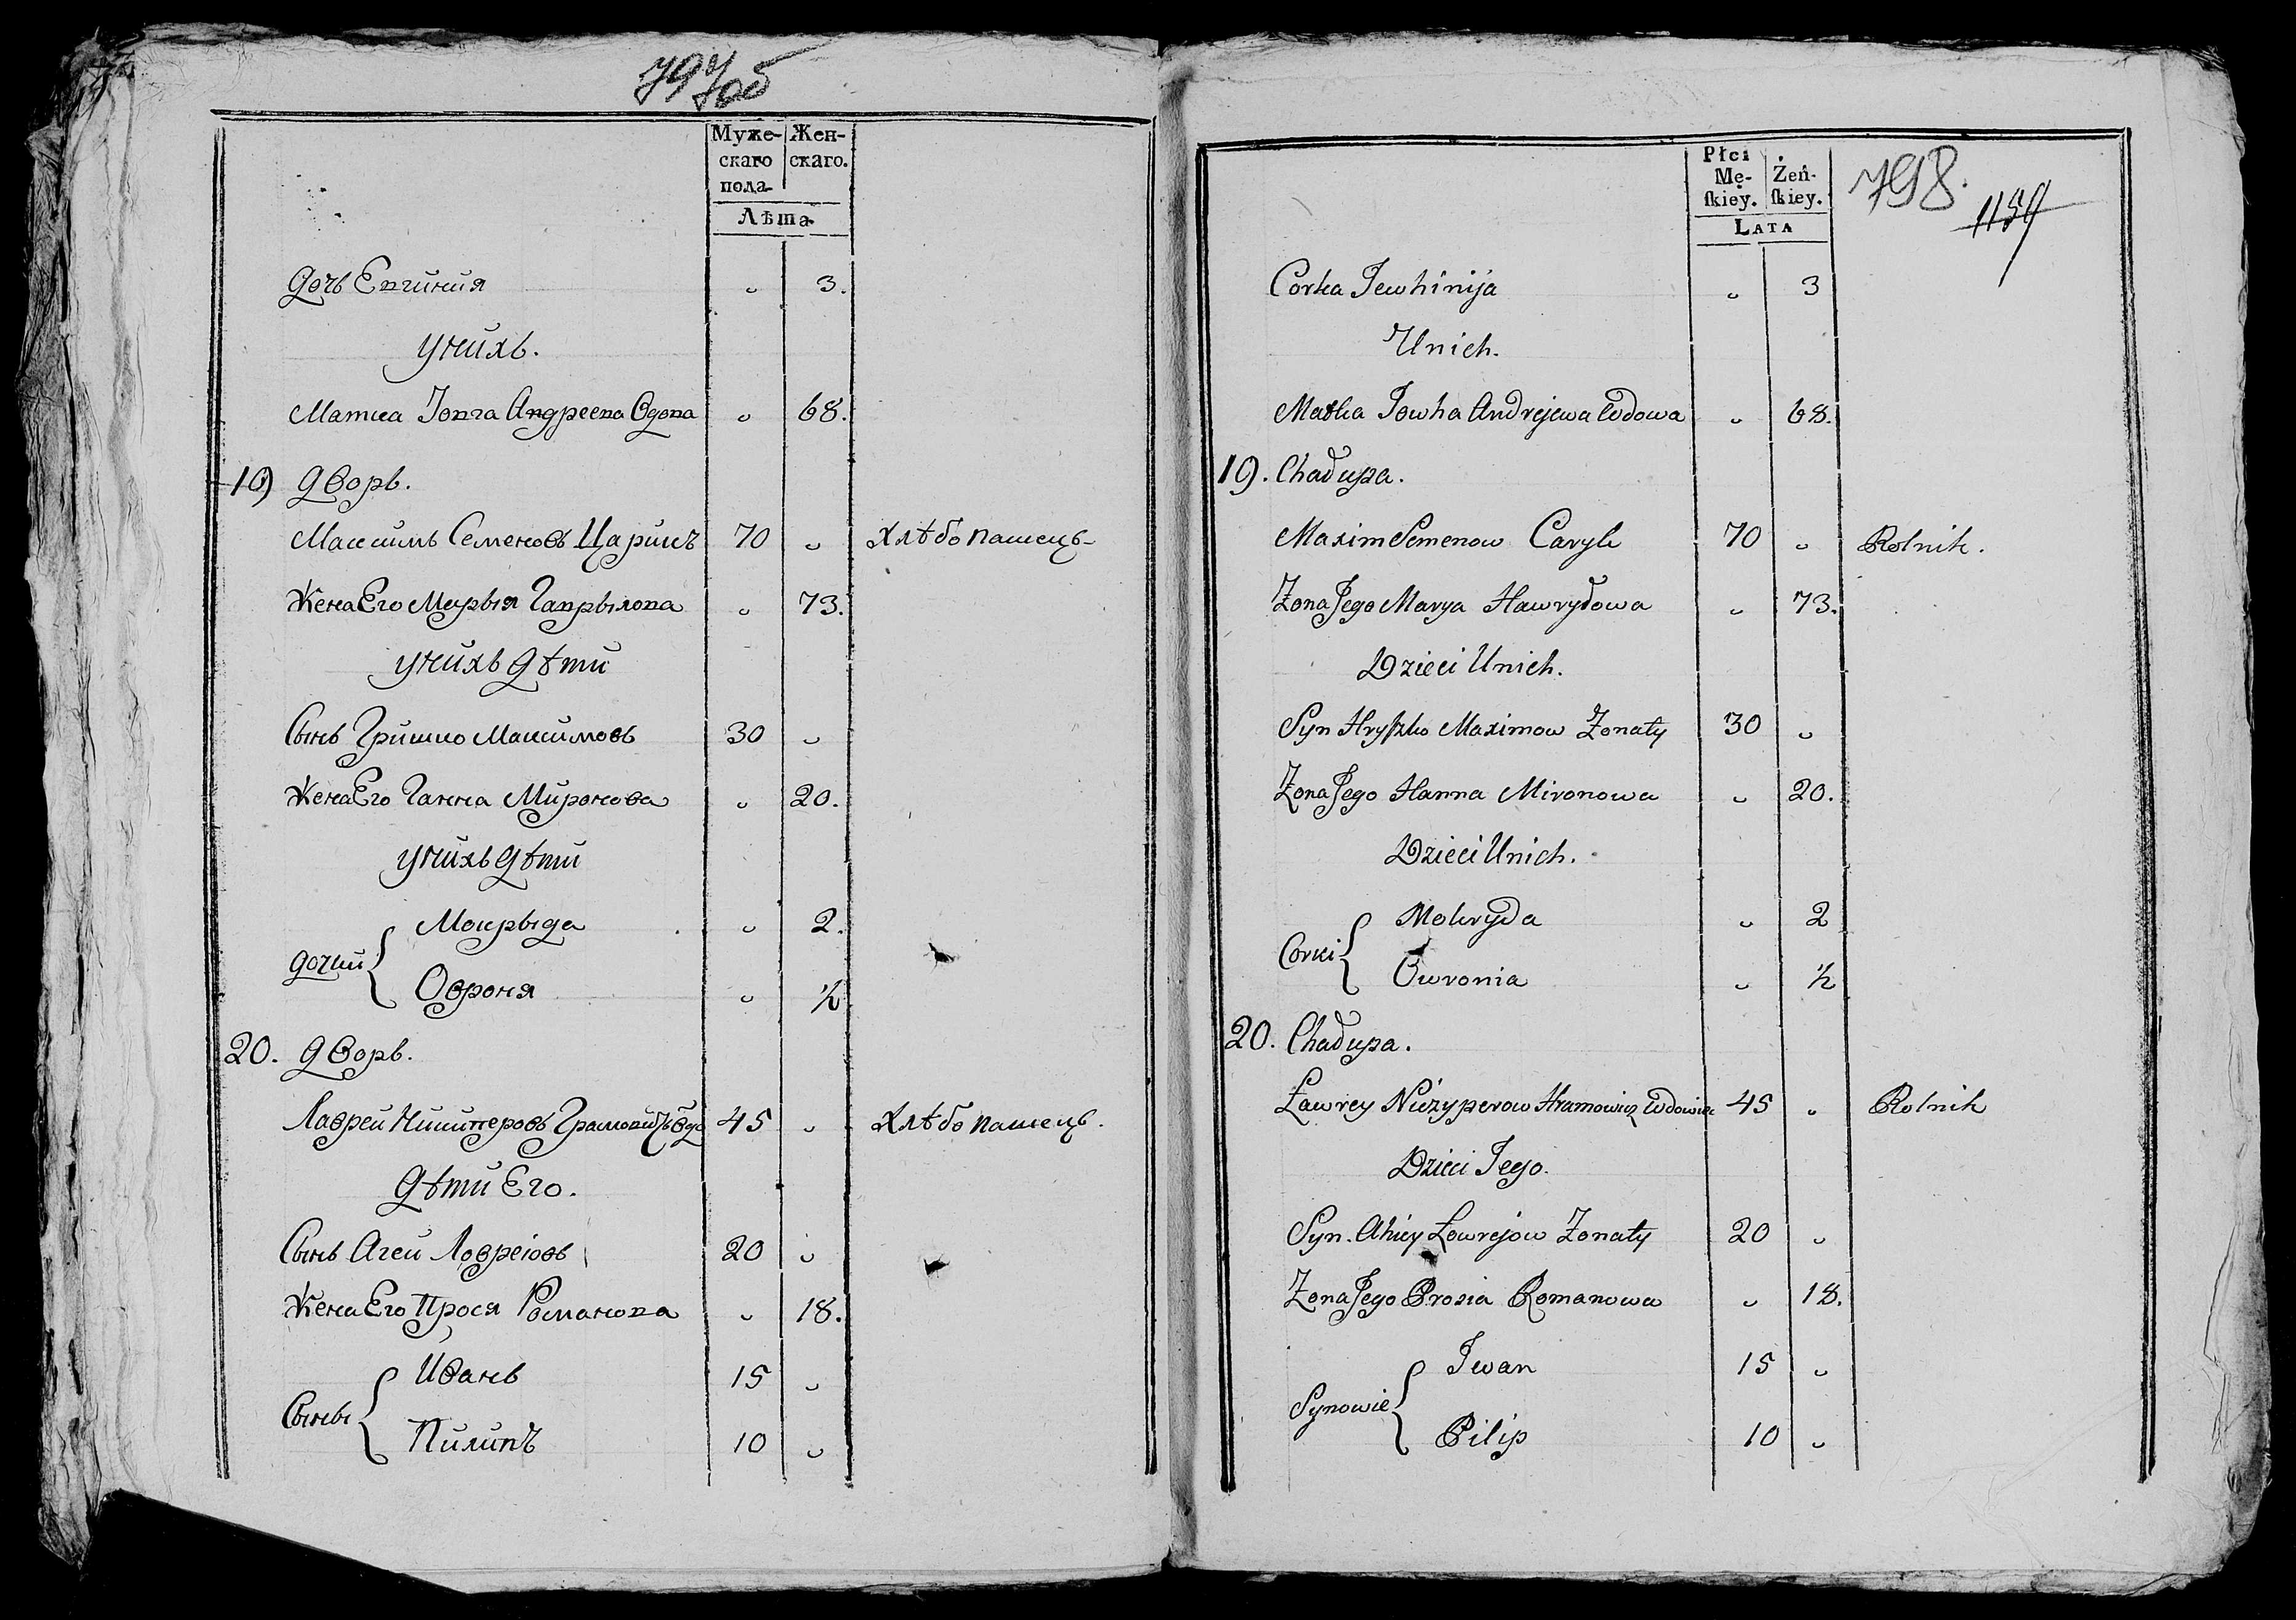 797/об
Муже- Жен-
скаго скаго.
пола
Лѣта
Дочь Евгиния " 3.
Унихъ.
Матка Ювга Андреева Вдова " 68.
19) Дворъ.
Максимъ Семеновъ Царикъ 70 " Хлѣбопашецъ
Жена Его Марыя Гаврылова " 73.
Унихъ Дѣти
Сынъ Гришко Максимовъ 30 "
Жена Его Ганна Миронова " 20.
Унихъ Дѣти
Дочки { Мокрыда " 2.
Овроня " ½
20. Дворъ.
Лаврей Ничиперовъ 45 " Хлѣбопашецъ.
Дѣти Его.
Сынъ Агей Лавреіовъ 20 "
Жена Его Прося Романова " 18.
Сыны { Иванъ 15 "
Пилипъ 10 "
Płci
Mę- Żeń-
ſkiey. ſkiey.
LATA
798.
1154
Corka Jewhinija " 3
Unich.
Matka Jowha Andrejewa Wdowa " 68.
19. Chałupa.
Maxim Semenow Caryk 70 " Rolnik.
Zona Jego Marya Hawryłowa " 73.
Dzieci Unich.
Syn Hryſzko Maximow Zonaty 30 "
Zona Jego Hanna Mironowa " 20.
Dzieci Unich.
Corki { Mokryda " 2
Owronia " ½
20. Chałupa.
Ławrey Niczyperow Hramowicz Wdowiec 45 " Rolnik
Dzieci Jego.
Syn Ahiey Ławrejow Zonaty 20 "
Zona Jego Prosia Romanowa " 18.
Synowie { Iwan 15 "
Pilip 10 "